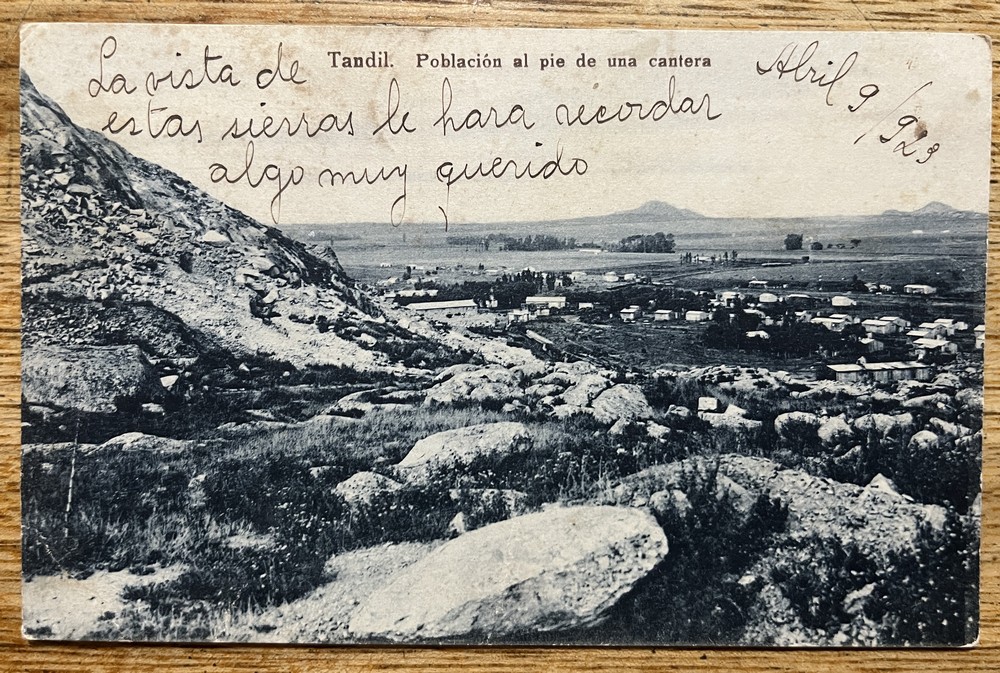 Tandil. Población al pie de una cantera
La vista de
estas sierras le hara recordar
algo muy querido
Abril 9/923